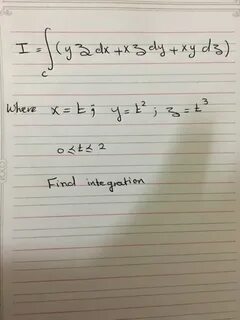 I = ∫_C (y z dx + x z dy + x y dz)
Where x = t ; y = t² ; z = t³
0 ≤ t ≤ 2
Find integration